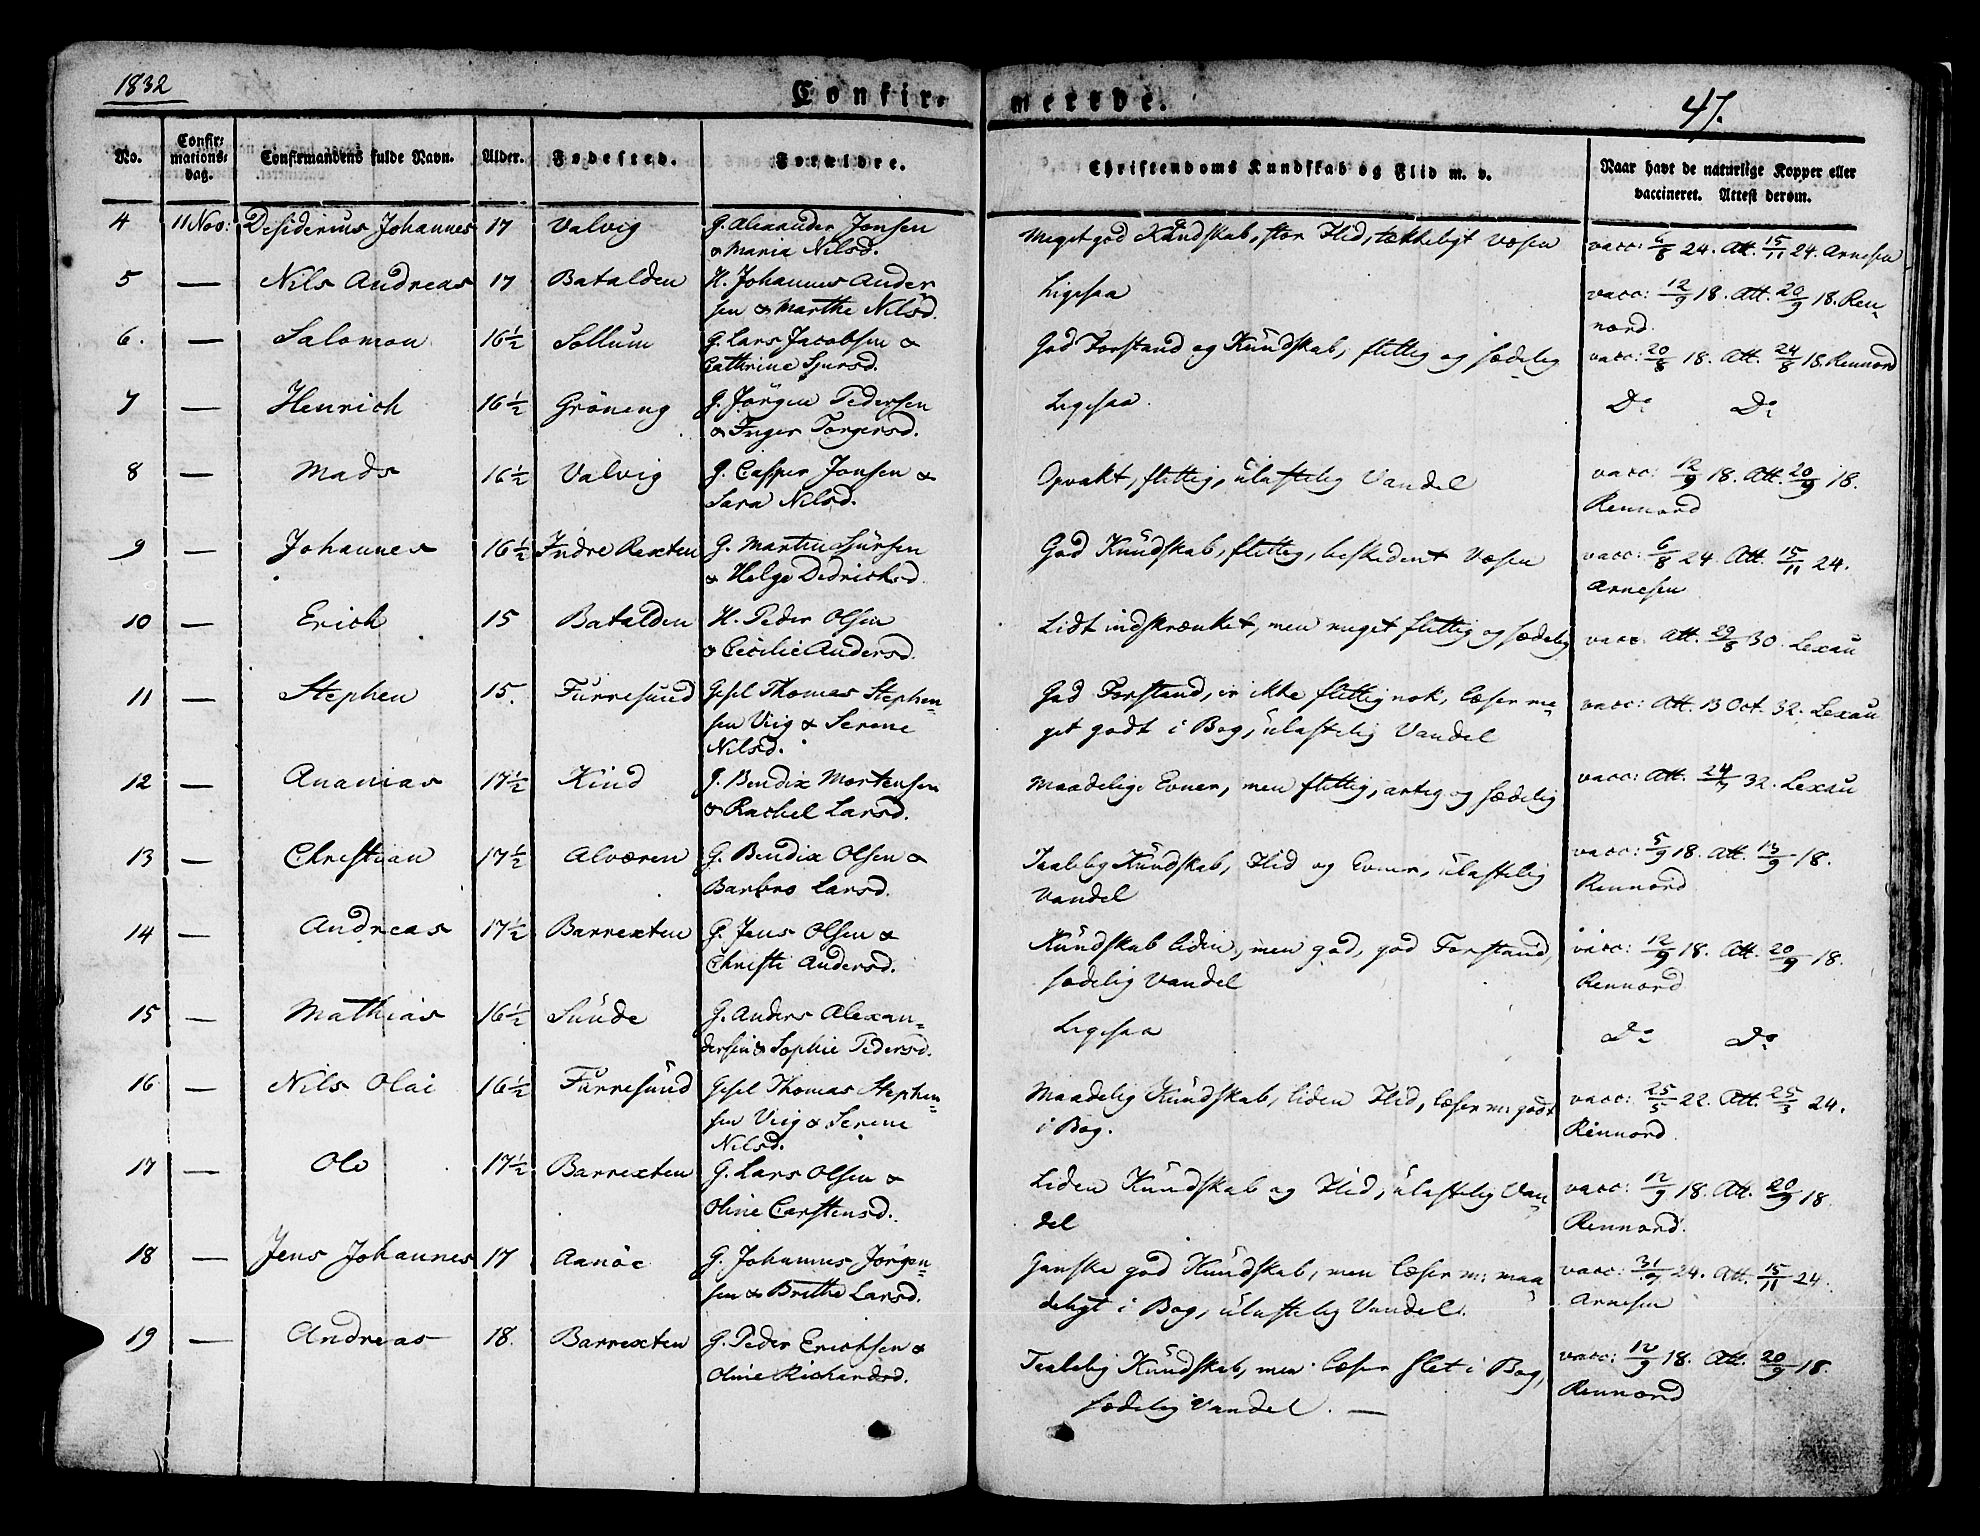 1832
Confir-
merede.
47.
No.
Confir-
mations-
dag.
Confirmandens fulde Navn.
Alder.
Fødested.
Forældre.
Christendoms Kundskab og Flid m. v.
Naar havt de naturlige Kopper eller
vaccineret. Attest derom.
4 11 Nov: Desiderius Johannes 17 Valvig G. Alexander Jonsen
& Maria Nilsd.
Meget god Kundskab, stor Flid, tækkeligt Væsen
vacc: 6/8 24. Att. 15/11 24. Arnesen
5 — Nils Andreas 17 Batalden H. Johannes Ander
sen & Marthe Nilsd.
Ligesaa
vacc: 12/9 18. Att. 20/9 18. Ren-
nord.
6. — Salomon 16½ Sollum G. Lars Jacobsen &
Cathrine Sjursd.
God Forstand og Kundskab, flittig og sædelig
vacc: 20/8 18. Att. 24/8 18. Rennord
7 — Henrich 16½ Gröneng G. Jörgen Pedersen
& Inger Torgersd.
Ligesaa.
Do Do
8 — Mads 16½ Valvig G. Casper Jonsen &
Sara Nilsd.
Opvakt, flittig, ulastelig Vandel
vacc: 12/9 18. Att. 20/9 18.
Rennord
9 — Johannes 16½ Indre Rexten G. Martin Sjursen
& Helge Didrichsd.
God Kundskab, flittig, beskedent Væsen
vacc: 6/8 24. Att. 15/11 24.
Arnesen
10 — Erich 15 Batalden H. Peder Olsen
& Cecilie Andersd.
Lidt indskrænket, men meget flittig og sædelig
vacc: Att. 29/8 30. Lexau
11 — Stephen 15. Furresund Gesel Thomas Stephen-
sen Viig & Serene
Nilsd.
God Forstand, er ikke flittig nok, læser me-
get godt i Bog, ulastelig Vandel
vacc: Att. 13 Oct. 32. Lexau
12 — Ananias 17½ Kind G. Bendix Mortensen
& Rachel Larsd.
Maadelige Evner, men flittig, artig og sædelig
vacc: Att. 24/7 32. Lexau
13 — Christian 17½ Alværen G. Bendix Olsen &
Barbro Larsd.
Taalelig Kundskab, Flid og Evner, ulastelig
Vandel
vacc: 5/9 18. Att. 13/9 18.
Rennord
14 — Andreas 17½ Barrexten G. Jens Olsen &
Christi Andersd.
Kundskab liden, men god, god Forstand,
sædelig Vandel
vacc: 12/9 18. Att. 20/9 18.
Rennord
15 — Mathias 16½ Sunde G. Anders Alexan-
dersen & Sophie Pedersd.
Ligesaa
Do Do
16 — Nils Olai 16½ Furresund Gesel Thomas Stephen-
sen Viig & Serene
Nilsd.
Maadelig Kundskab, liden Flid, læser m: godt
i Bog.
vacc: 25/5 22. Att. 25/3 24.
Rennord
17 — Ole 17½ Barrexten G. Lars Olsen &
Oline Carstensd.
Liden Kundskab og Flid, ulastelig Van-
del
vacc: 12/9 18. Att. 20/9 18
Rennord.
18 — Jens Johannes 17 Aanöe G. Johannes Jörgen-
sen & Brithe Larsd.
Ganske god Kundskab, men læser m: maa-
deligt i Bog, ulastelig Vandel.
vacc: 31/7 24. Att. 15/11 24.
Arnesen
19 — Andreas 18. Barrexten G. Peder Erichsen &
Oline Richardsd.
Taalelig Kundskab, men læser slet i Bog,
sædelig Vandel. —
vacc: 12/9 18. Att. 20/9 18.
Rennord